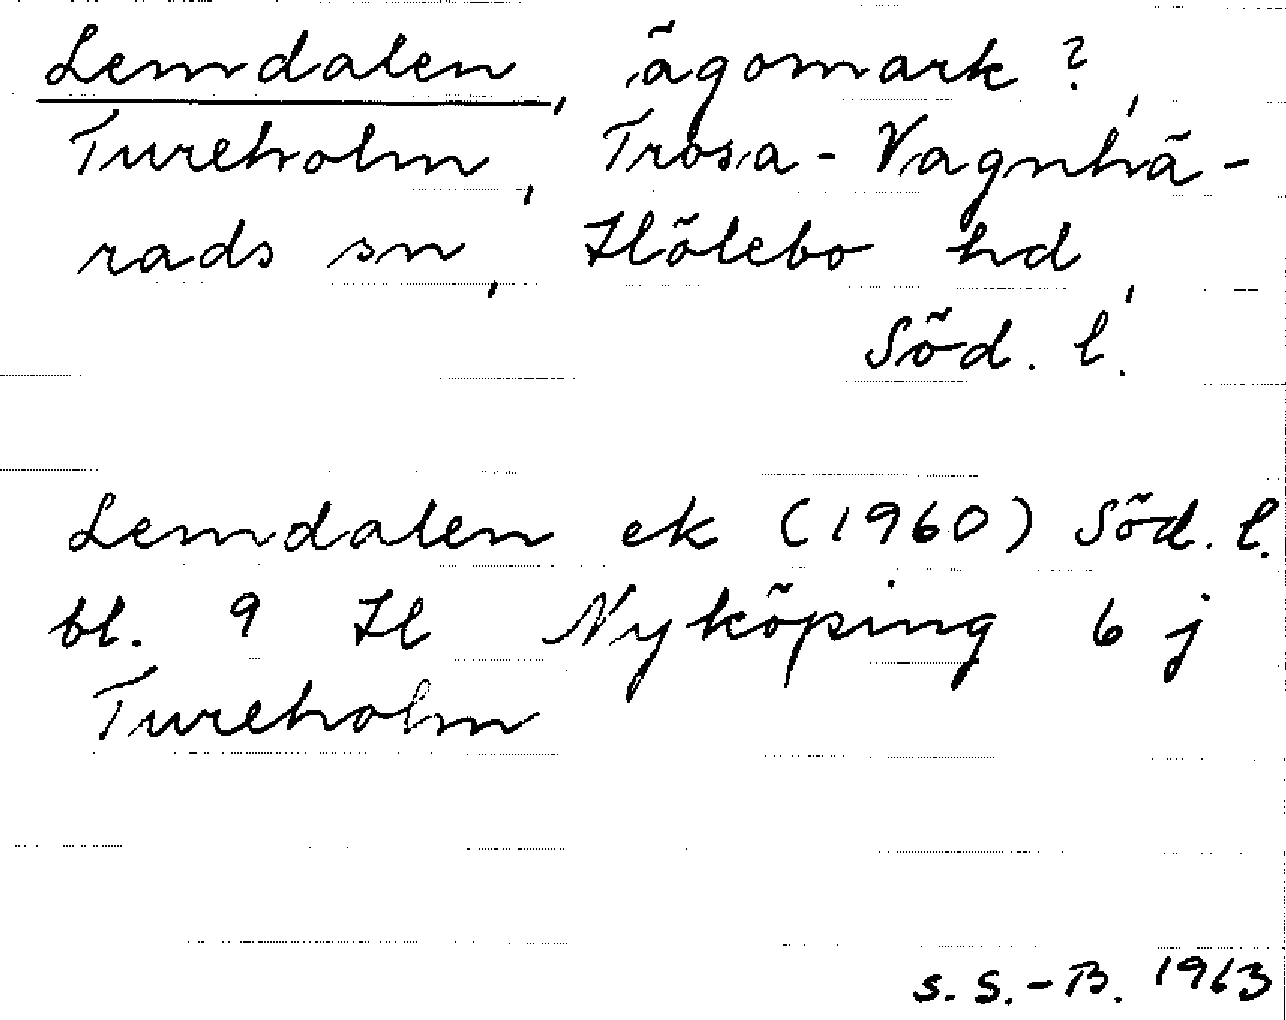 Lemdalen, ägomark?,
Tureholm, Trosa-Vagnhä-
rads sn, Hölebo hd,
Söd. l.
Lemdalen ek (1960) Söd. l.
bl. 9 H Nyköping 6 j
Tureholm
S. S.-B. 1963